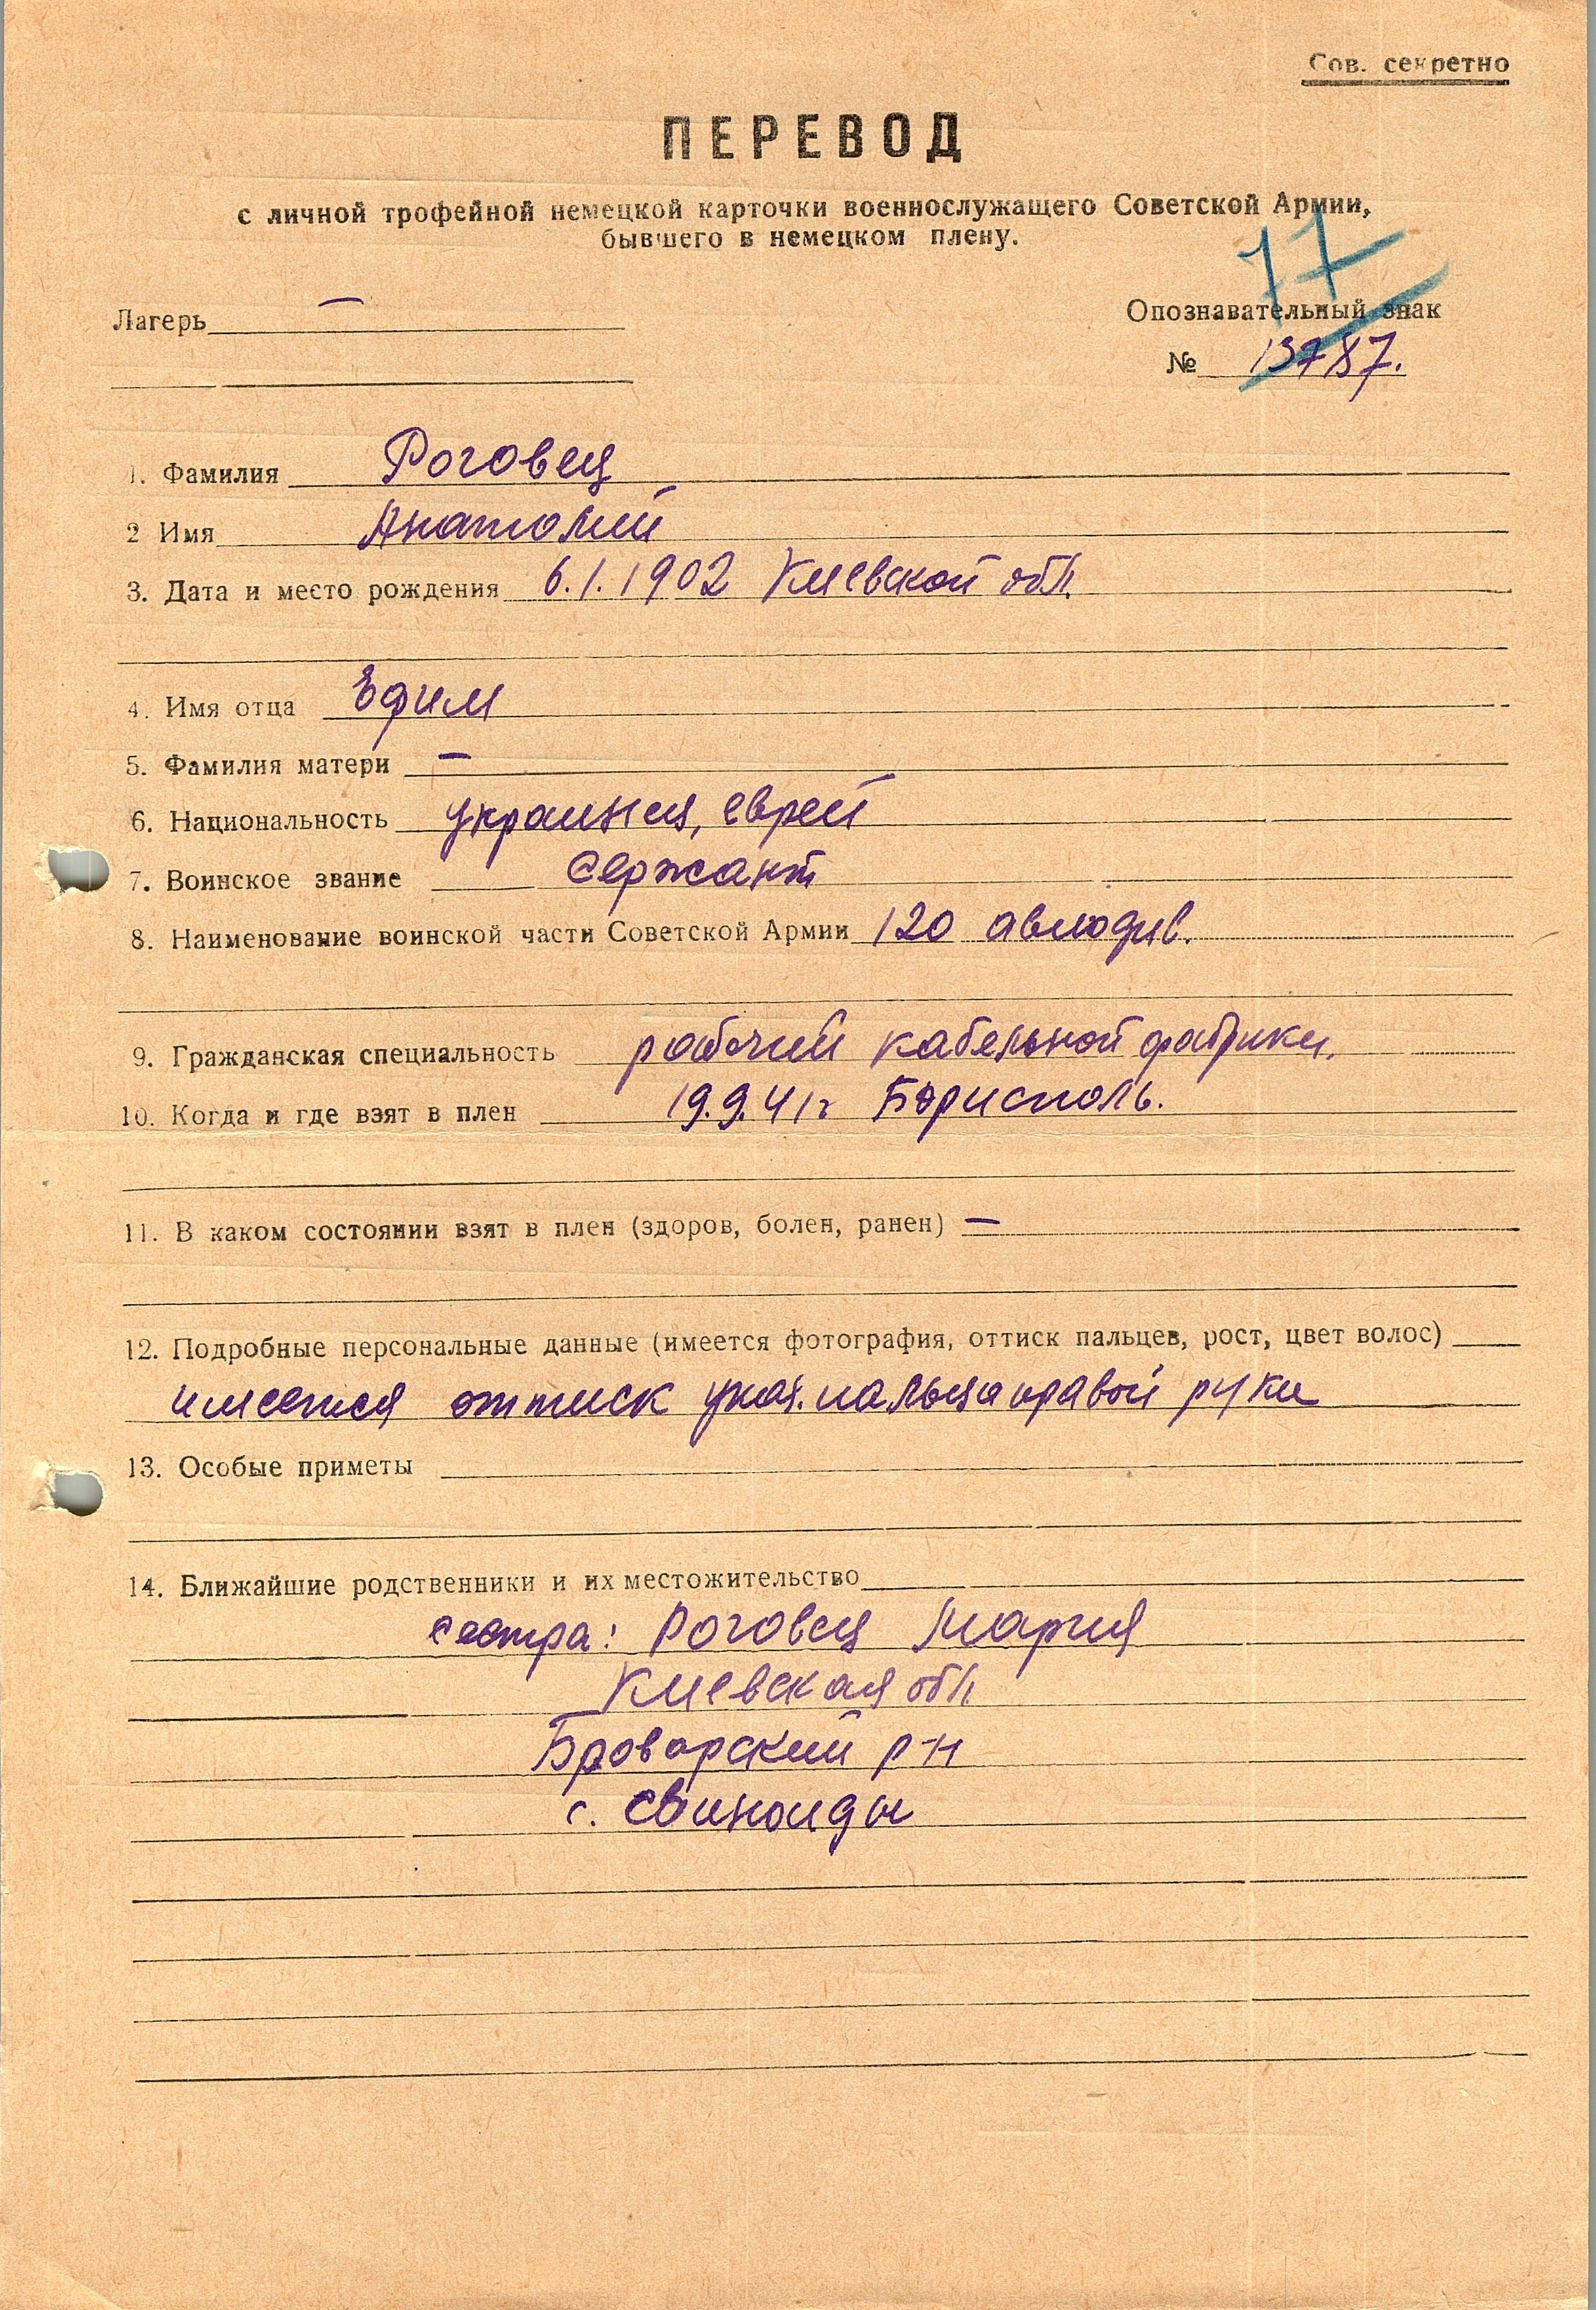 Сов. секретно
ПЕРЕВОД
с личной трофейной немецкой карточки военнослужащего Советской Армии,
бывшего в немецком плену.
77
Лагерь —
Опознавательный знак
№ 13787.
1. Фамилия Роговец
2 Имя Анатолий
3. Дата и место рождения 6.1.1902 Киевской обл.
4. Имя отца Ефим
5. Фамилия матери —
6. Национальность украинец, еврей
7. Воинское звание Сержант
8. Наименование воинской части Советской Армии 120 автодив.
9. Гражданская специальность рабочий кабельной фабрики.
10. Когда и где взят в плен 19.9.41г Борисполь.
11. В каком состоянии взят в плен (здоров, болен, ранен) —
12. Подробные персональные данные (имеется фотография, оттиск пальцев, рост, цвет волос)
имеется оттиск указ. пальца правой руки
13. Особые приметы
14. Ближайшие родственники и их местожительство
сестра: Роговец Мария
Киевская обл
Броварский р-н
с.